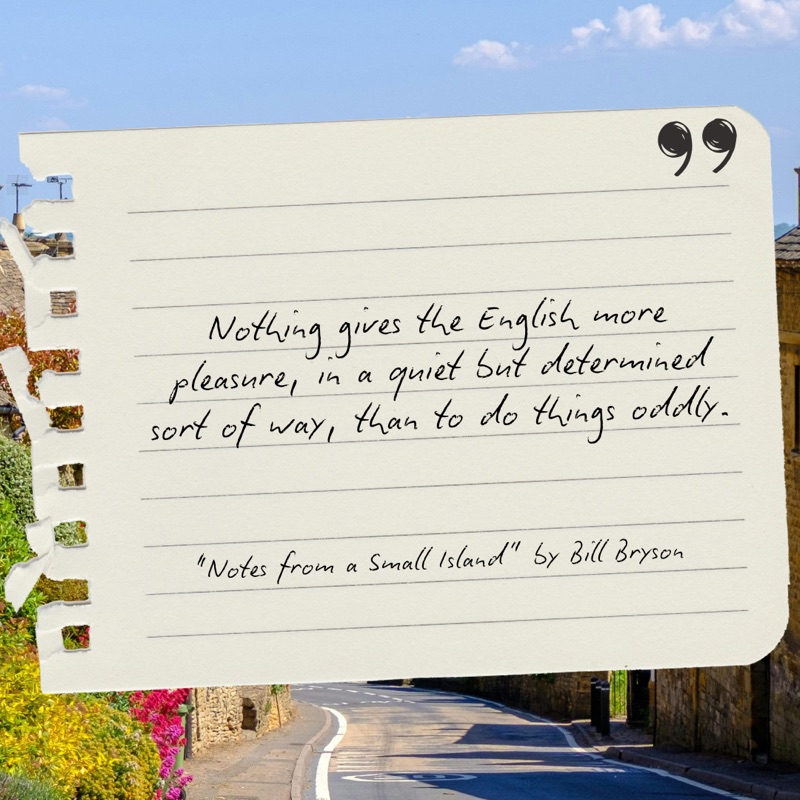 ”
Nothing gives the English more
pleasure, in a quiet but determined
sort of way, than to do things oddly.
"Notes from a Small Island" by Bill Bryson